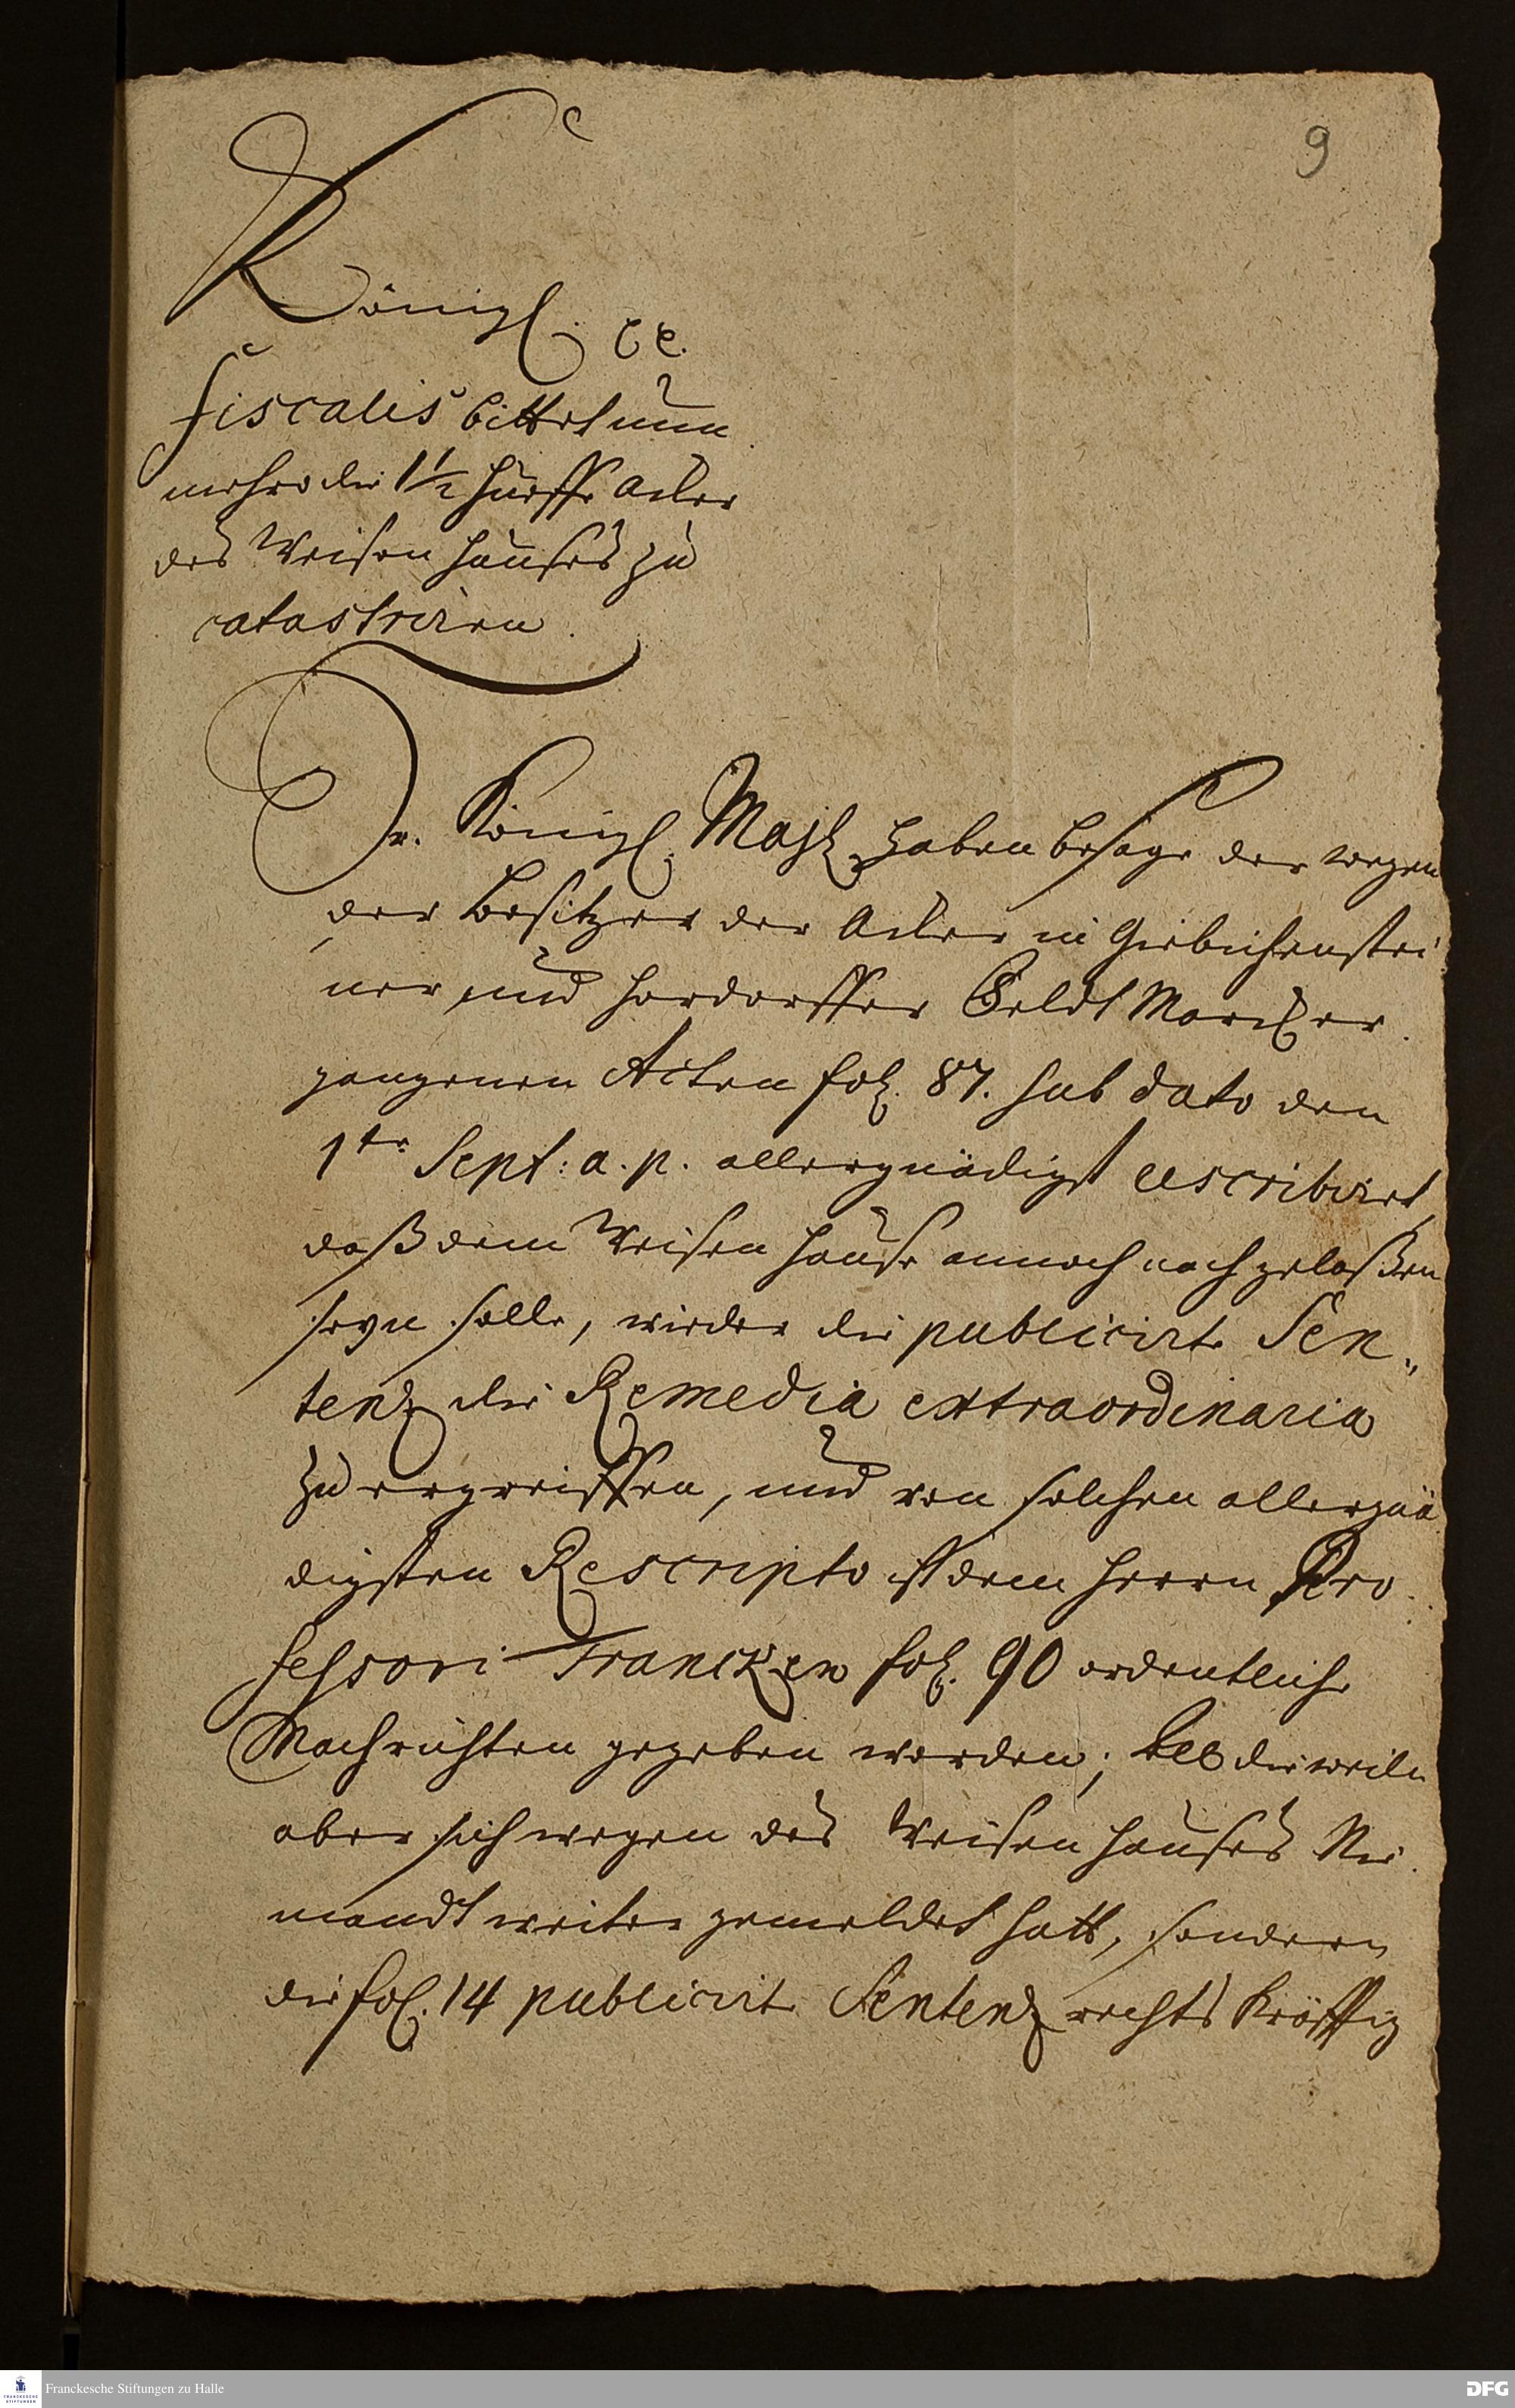 9
Königl. ꝛc.
Fiscalis bittet nun
mehro die 1½ Hueffe Acker
des Weisenhauses zu
catastriren.
Sr. Königl. Majt. haben besage der wegen
der Besitzer der Äcker in Giebichenstei
ner und Hordorffer Feldt Marck er
gangenen Acten fol. 87. sub dato den
1ten Sept: a. p. allergnädigst rescribiret,
daß dem Weisenhause annoch nachgelaßen
seyn solle, wieder die publicirte Sen„
tenz die Remedia extraordinaria
zu ergreiffen, und von solchen allergnä
digsten Rescripto ist dem Herrn Pro
fessori Francken fol. 90 ordentliche
Nachrichten gegeben worden; All dieweiln
aber sich wegen des Weisenhauses Nie
mandt weiter gemeldet hatt, sondern
die fol. 14 publicirte Sentenz rechts kräfftig
Franckesche Stiftungen zu Halle
FRANCKESCHE
STIFTUNGEN
DFG